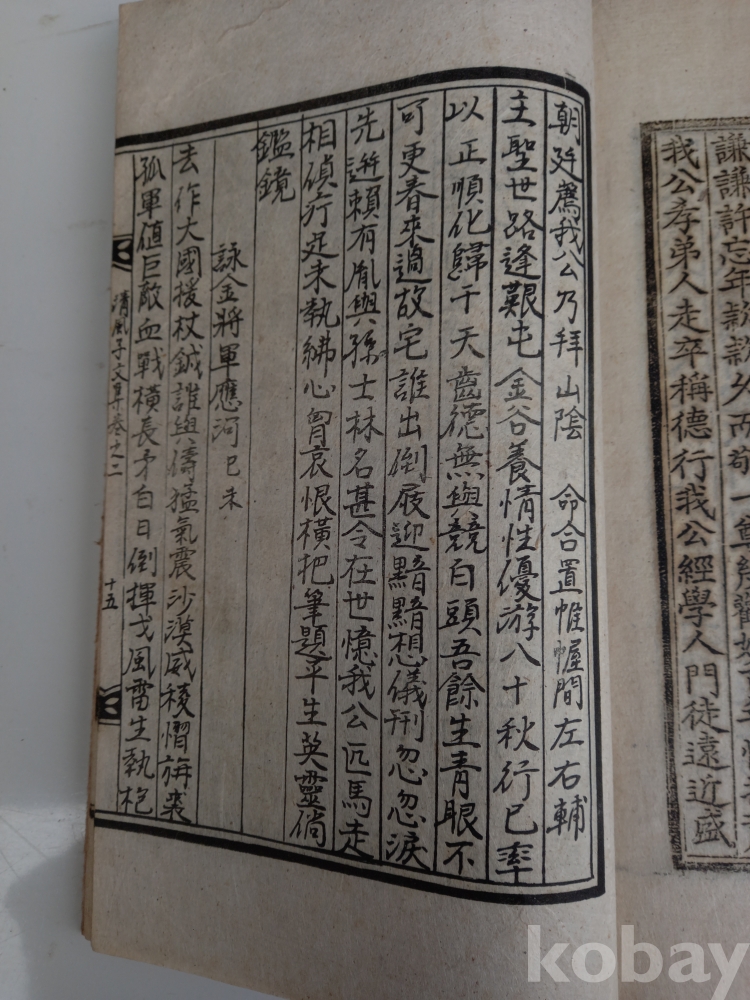 謙謙許忘年款款久而敬一
我公孝弟人走卒稱德行我公經學人門徒遠近盛
朝廷薦我公乃拜山陰 命合置帷幄間左右輔
主聖世路逢艱屯金谷養情性優游八十秋行已率
以正順化歸于天齒德無與競白頭吾餘生靑眼不
可更春來過故宅誰出倒屐迎黯黯想儀刑忽忽淚
先迸賴有胤與孫士林名甚令在世憶我公匹馬走
相偵疔足未執紼心胷哀恨橫把筆題平生英靈倘
鑑鏡
詠金將軍應河 己未
去作大國援杖鉞誰與儔猛氣震沙漠威稜慴旃裘
孤軍値巨敵血戰橫長矛白日倒揮戈風雷生執枹
淸風子文集卷之二
十五
kobay